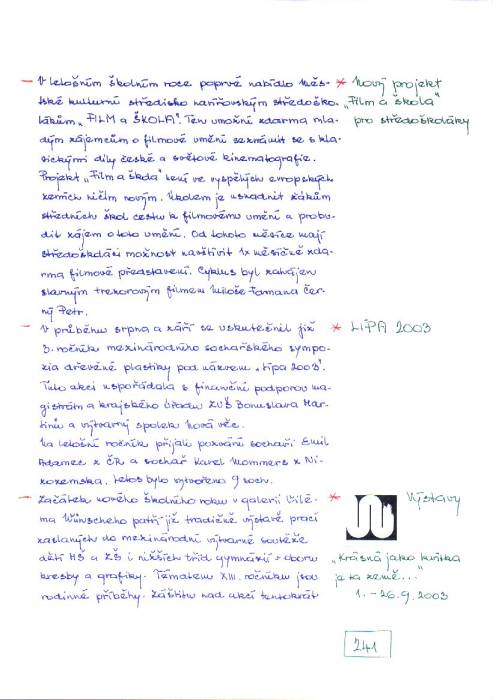 – V letošním školním roce poprvé nabídlo Měs-
tské kulturní středisko havířovským středoško-
lákům „FILM a ŠKOLA". Ten umožní zdarma mla-
dým zájemcům o filmové umění seznámit se s kla-
sickými díly české a světové kinematografie.
Projekt „Film a škola" není ve vyspělých evropských
zemích ničím novým. Úkolem je usnadnit žákům
středních škol cestu k filmovému umění a probu-
dit zájem o toto umění. Od tohoto měsíce mají
středoškoláci možnost navštívit 1x měsíčně zda-
rma filmové představení. Cyklus byl zahájen
slavným filmem Miloše Formana Čer-
ný Petr.
* Nový projekt
„Film a škola"
pro středoškoláky
– V průběhu srpna a září se uskutečnil již
3. ročník mezinárodního sochařského sympo-
zia dřevěné plastiky pod názvem „Lípa 2003".
Tuto akci uspořádala s finanční podporou ma-
gistrátu a krajského úřadu ZUŠ Bohuslava Mar-
tinů a výtvarný spolek Nová věc.
Na letošní ročník přijali pozvání sochaři Emil
Adamec z ČR a sochař Karel Mommers z Ni-
zozemska. Letos bylo vytvořeno 9 soch.
* LÍPA 2003
– Začátek nového školního roku v galerii Vilé-
ma Wünscheho patří již tradičně výstavě prací
zaslaných do mezinárodní výtvarné soutěže
dětí MŠ a ZŠ i nižších tříd gymnázií – oboru
kresby a grafiky. Tématem XIII. ročníku jsou
rodinné příběhy. Záštitu nad akcí tentokrát
* Výstavy
„Krásná jako kvítka
je ta země..."
1. – 26.9.2003
241